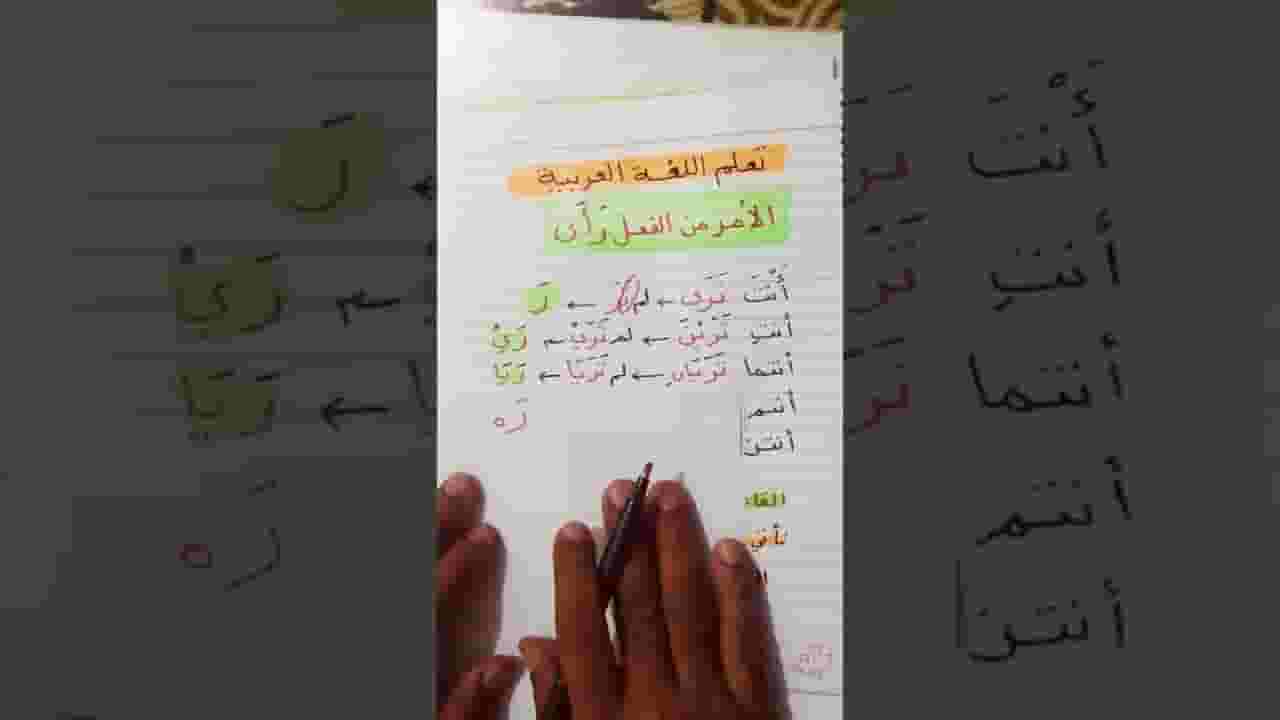 تعلم اللغة العربية
الأمر من الفعل رَأَى
أَنْتَ تَرَى ← لم ← رَ
أنتِ تَرَيْنَ ← لم تَرَيْ ← رَيْ
أنتما تَرَيَانِ ← لم تَرَيَا ← رَيَا
أنتم رَه
أنتن
القاء
تأتي